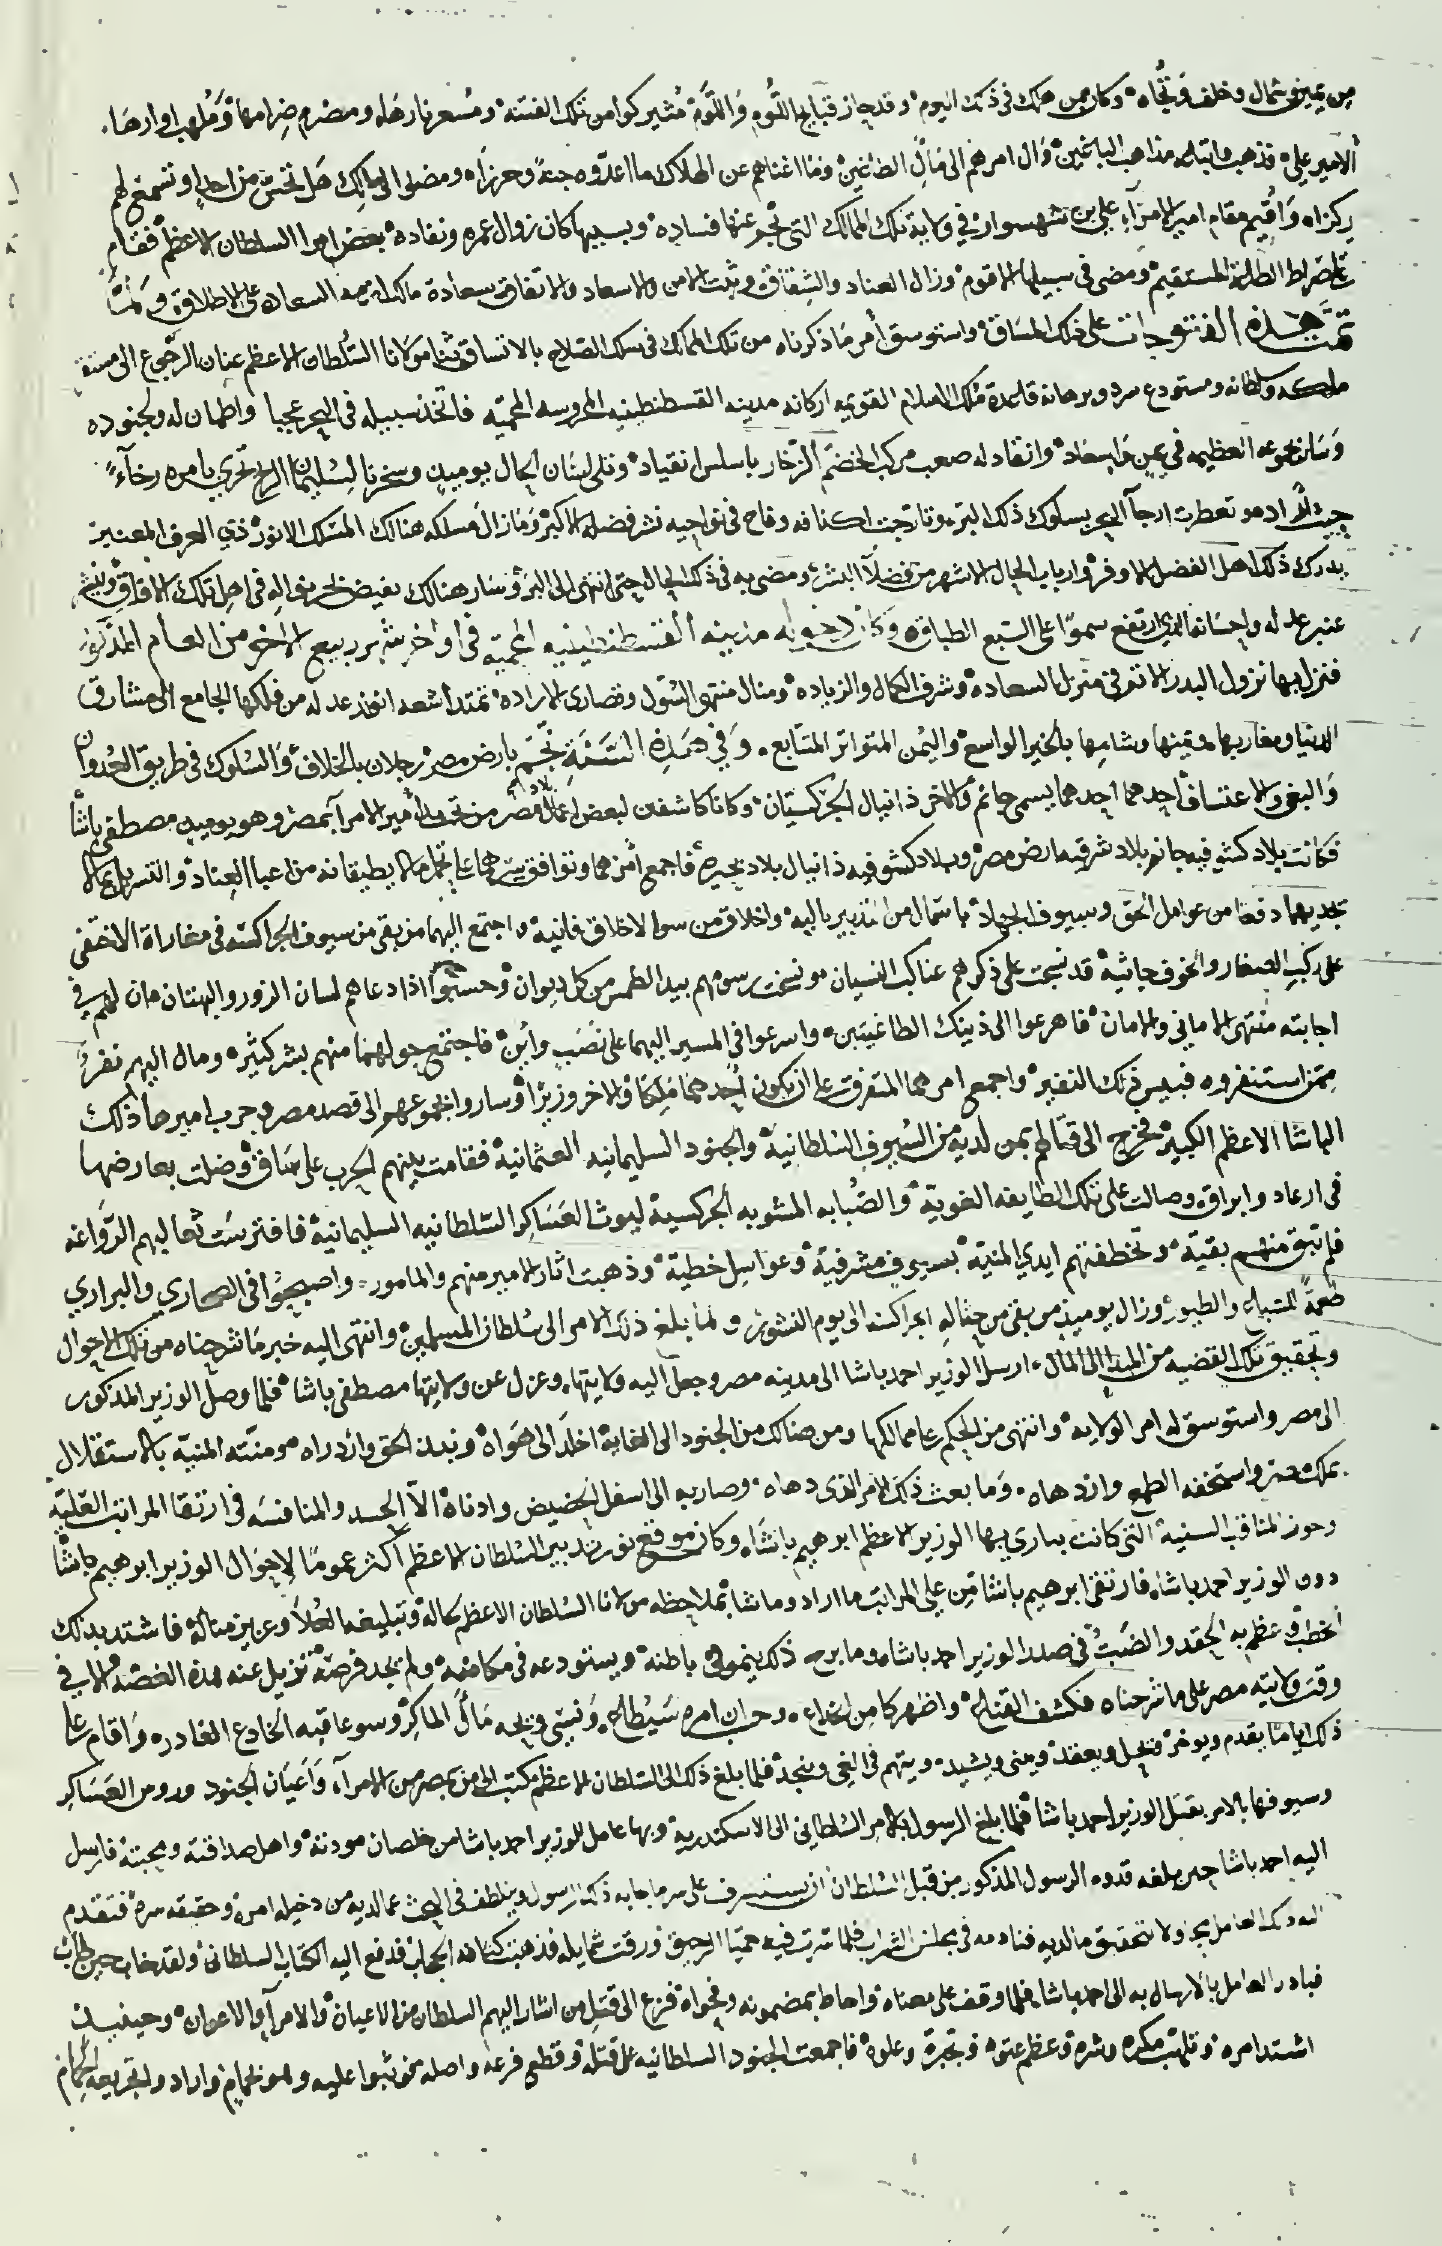 من يمين وشمال وخلف وتجاه وكان من هلك في ذلك اليوم وقد حاز قبايح اللوم واللوم مثير كوامن تلك الفتنة ومسعر نارها ومضرم ضرامها وملهب اوارها
الامير علي فذهب واتباعه مذاهب الباغين وال امرهم الى مآل الطاغين وما اغناهم عن الهلاك ما اعدوه جنة وحرزا ومضى الى مالك هل تحس من احد او تسمع لهم
ركزا واقيم مقام امير الامراء علي بن شهسوار في ولاية تلك الممالك التي نجم عنها فساده وبسببها كان زوال عمره ونفاده بعض امرا السلطان الاعظم فقام
على صراط الطاعة المستقيم ومضى في سبيلها الاقوم وزال العناد والشقاق وثبت الامن والاسعاد والاتفاق بسعادة مالك ازمه السعاده على الاطلاق ولما
تمت هذه الفتوحات على ذلك المساق واستوسق أمر ما ذكرناه من تلك الممالك في سلك الصلاح بالاتساق ثنا مولانا السلطان الاعظم عنان الرجوع الى
ملكه وسلطانه ومستودع سره وبرهانه قاعدة ملك الاسلام القويمه اركانه مدينه القسطنطينيه المحروسه المحميه فاتخذ سبيله في البحر عجبا واطمان له ولجنوده
وساير جموعه العظيمه في يمن واسعاد وانقاد له صعب مركب الخضم الزخار باسلس انقياد وتلى لسان الحال يوميذ وسخرنا لسليمان الريح تجري بامره رخآءً
حيث اراد هو تعطرت ارجآ البحر بسلوك ذلك البر وتارجت اكنافه وفاح في نواحيه نشر فضله الاكبر وما زال مسلكه هنالك المسك الانور ذي العرف المعنبر
يدرك ذلك اهل الفضل الاوفر وارباب الحال الاشهر من فضلآ البشر ومضى به في ذلك الحال حتى انتهى الى البر وسار هنالك يفيض بحر نواله في اهل تلك الافاق وينشر
عنبر عدله واحسانه الذي ارتفع سموا على السبع الطباق وكان دخوله مدينه القسطنطينيه المحميه في اواخر شهر ربيع الاخر من العام المذكور
فنزل بها نزول البدر الاتم في منزل السعاده وشرف الكمال والزياده ومنال منتهى السول وقصارى الاراده تمتد أشعه انوار عدله من فلكها الجامع الى مشارق
الدنيا ومغاربها ويمنها وشامها بالخير الواسع واليمن المتواتر المتتابع وفي هذه السنة نجم بارض مصر رجلان بالخلاف والسلوك في طريق العدوان
والبغى والاعتساف أحدهما يسمى جانم والاخر ذانيال الجركسيان وكانا كاشفين لبعض اعمال بلاد مصر من تحت يد أمير الامرآ بمصر وهو يوميذ مصطفى باشا
فكانت بلاد كشوفيه جانم بلاد شرقيه ارض مصر وبلاد كشوفيه ذانيال بلاد بحيره فاجمع أمرهما وتوافق سرهما على تحمل ما لا يطيقانه من اعبا العناد والتسربل بما لا
يجديهما دفعا من عوامل الحق وسيوف الجهاد باسمال من التدبير باليه واخلاق من سوا الاخلاق فانيه واجتمع اليهما من بقى من سيوف الجراكسه في مغاراة الاختفى
على ركب الصغار والخوف جاثية قد نسجت على ذكرهم عناكب النسيان ونسخت رسومهم بيد الطمس من كل ديوان وحسبوا اذا دعاهم لسان الزور والبهتان بان لهم في
اجابته منتهى الاماني والامان فاهرعوا الى ذينك الطاغيتين واسرعوا في المسير اليهما على نصب وأين فاجتمع حولهما منهم بشر كثير ومال اليهم نفر
ممن استنفروه فبيس ذلك النفير واجمع امرهما المتفرق على ان يكون أحدهما ملكا والاخر وزيرا وساروا بجموعهم الى قصد مصر وحرب اميرها ذلك
الباشا الاعظم الكبير فخرج الى قتالهم بمن لديه من السيوف السلطانية والجنود السليمانيه العثمانية فقامت بينهم الحرب على ساق وضلت بعارضها
في ارعاد وابراق وصالت على تلك الطايفه الغوية والضبابه المشوبه الجركسية ليوث العساكر السلطانيه السليمانية فافترست ثعاليهم الرواغه
فلم تبق منهم بقية وتخطفتهم ايدي المنية بسيوف مشرفية وعواسل خطية وذهبت اثار الامير منهم والمامور واصبحوا في الصحاري والبراري
طعمة للسباع والطيور وزال يوميذ من بقى من حثاله الجراكسه الى يوم النشور ولما بلغ ذلك الامر الى سلطان المسلمين وانتهى اليه خبر ما شرحناه من تلك الاحوال
وتحقيق تلك القضيه من المبدا الى المآل ارسل الوزير احمد باشا الى مدينه مصر وجعل اليه ولايتها وعزل عن ولايتها مصطفى باشا فلما وصل الوزير المذكور
الى مصر واستوسق له امر الولايه وانتهى من الحكم على ممالكها ومن هنالك من الجنود الى الغاية اخلد الى هواه ونبذ الحق وازدراه ومنته المنية بالاستقلال
بملك مصر واستخفه الطمع وازدهاه وما بعث ذلك الامر الذى دهاه وصار به الى اسفل الحضيض وادناه الا الحسد والمنافسه في ارتقا المراتب العلية
وحوز المناقب السنيه التي كانت يباري بها الوزير الاعظم ابرهيم باشا وكان موقع نور تدبير السلطان الاعظم أكثر عموما لاحوال الوزير ابرهيم باشا
دون الوزير احمد باشا فارتقى ابرهيم باشا من على المراتب ما اراد وما شا بملاحظه مولانا السلطان الاعظم بحاله وتبليغه العلا وعزيز مناله فاشتد بذلك
الخطب وعظم به الحقد والضب في صدر الوزير احمد باشا وما برح ذلك ينمو في باطنه ويستودعه في مكامنه ولم يجد فرصة تزيل عنه هذه الغصه الا في
وقت ولايته مصر على ما شرحناه فكشف القناع واظهر كامن الخداع وحسان امره سيطاع ونسى ويحه مآل الماكر وسو عاقبه الخادع الغادر واقام على
ذلك اياما يقدم ويوخر ويحل ويعقد ويبني ويشيد ويتهم في الغي وينجد فلما بلغ ذلك الى السلطان الاعظم كتب الى من بمصر من الامرآ واعيان الجنود وروس العساكر
وسيوفها بالامر بقتل الوزير احمد باشا فلما بلغ الرسول بالامر السلطاني الى الاسكندرية وبها عامل للوزير احمد باشا من خلصان مودته واهل صداقته ومحبته فارسل
اليه احمد باشا حين بلغه قدوم الرسول المذكور من قبل السلطان ان يستشرف على سر ما جا به ذلك الرسول ويتلطف في البحث عما لديه من دخيله امره وحقيقه سره فتقدم
اليه ذلك العامل محاولا لتحقيق ما لديه فنادمه في مجلس الشراب فلما سرت فيه حميا الرحيق ورقت شمايله فذهبت كثافه الحجاب فدفع اليه الكتاب السلطاني ولقد خاب حين خاب
فبادر العامل بالارسال به الى احمد باشا فلما وقف على معناه واحاط بمضمونه وفحواه فزع الى قتل من اشار اليهم السلطان من الاعيان والامرآ والاعوان وحينيذ
اشتد امره وتلهب مكره وشره وعظم عتوه وتجبره وعلوه فاجمعت الجنود السلطانيه على قتله وقطع فرعه واصله فوثبوا عليه وهو بالحمام واراد والتجريعه الحمام